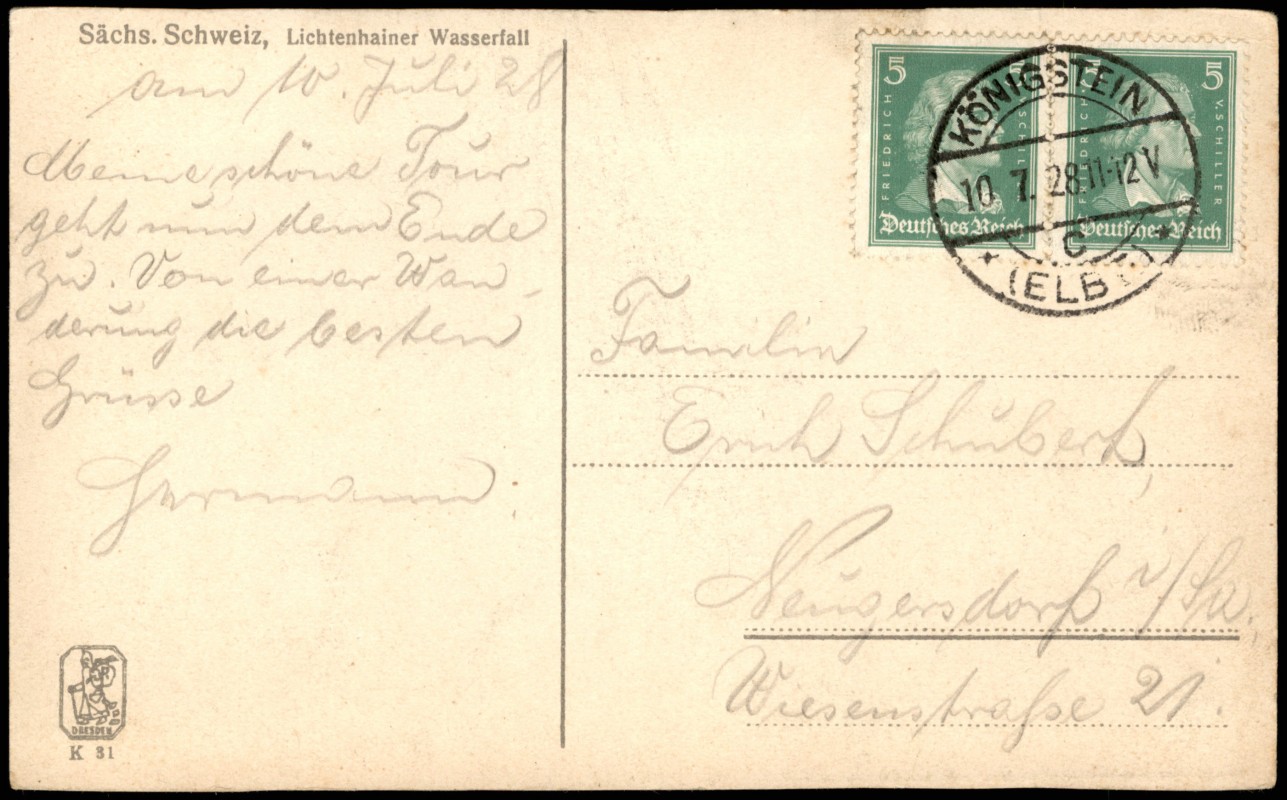 Sächs. Schweiz, Lichtenhainer Wasserfall
am 10. Juli 28
Meine schöne Tour
geht nun dem Ende
zu. Von einer Wan-
derung die besten
Grüsse
Hermann.
DRESDEN
K 31
5
5
FRIEDRICH
V. SCHILLER
Deutsches Reich
5
FRIEDRICH
V. SCHILLER
Deutsches Reich
KÖNIGSTEIN
10. 7. 28.11-12V
* C *
(ELBE)
Familie
Erich Schubert,
Neugersdorf i/Sa.
Wiesenstraße 21.